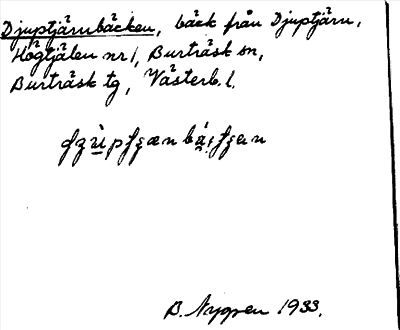 Djuptjärnbäcken, bäck från Djuptjärn,
Högtjälen nr 1, Burträsk sn,
Burträsk tg, Västerb. l.
B. Nygren 1933.